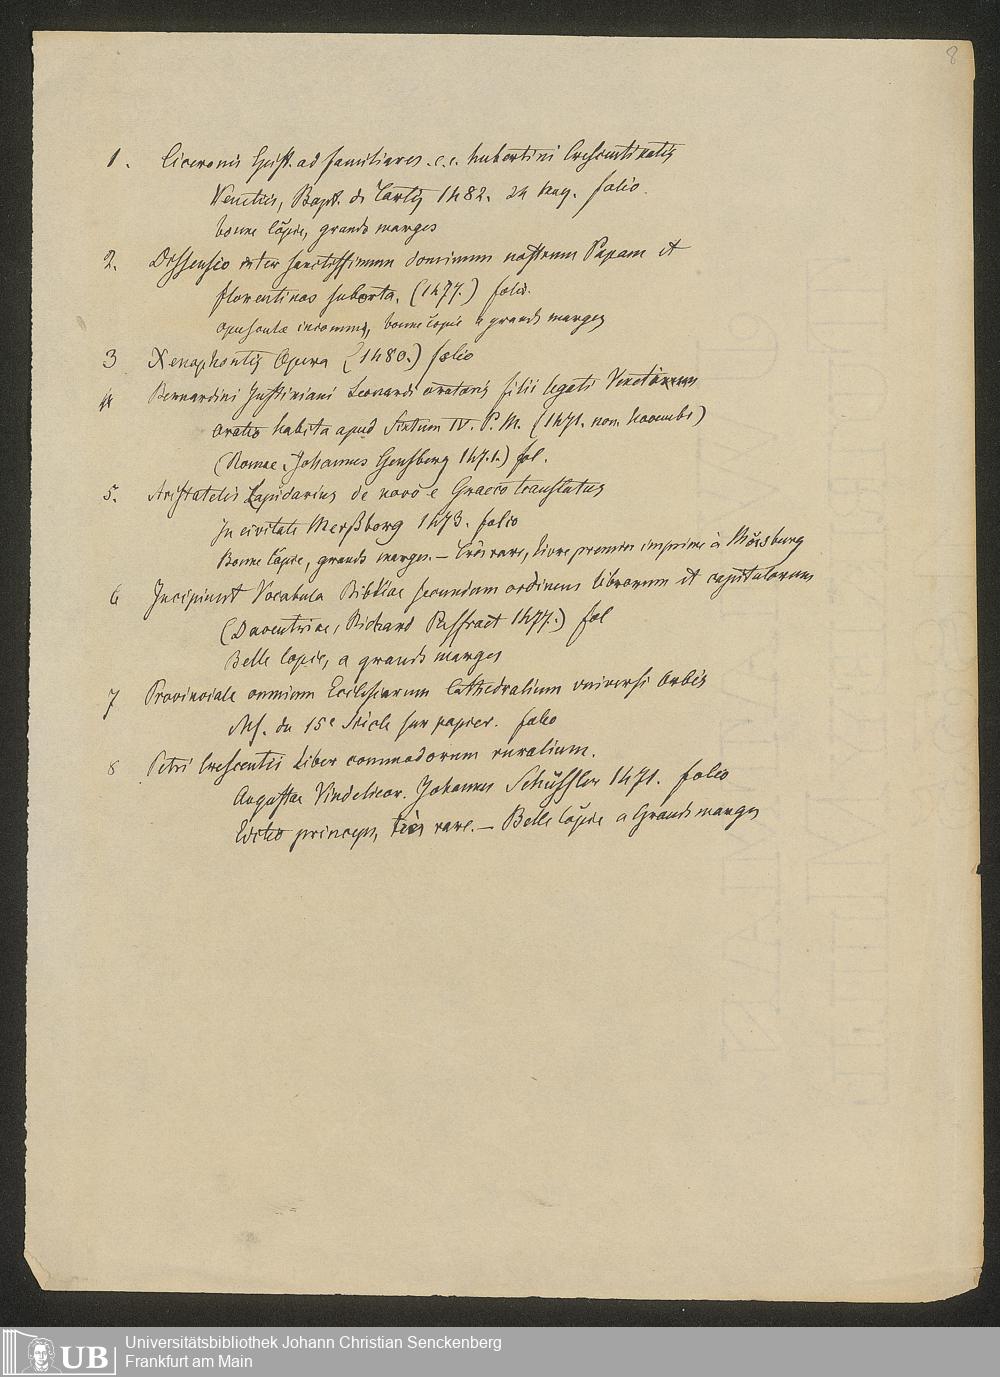 8
1. Ciceronis Epist. ad familiares. c. c. hubertini Crescentinatis
Venetiis, Bapt. de Tortis 1482. 24 May. folio.
bonne Copie, grands marges
2. Dissensio inter sanctissimum dominum nostrum Papam et
florentinos suborta. (1477.) folio.
opuscule inconnu, bonne Copie a grands marges
3 Xenophontis Opera (1480.) folio
4 Bernardini Justiniani Leonardi oratoris filii legati Venetorum
oratio habita apud Sixtum IV. P. M. (1471. non. Novembr)
(Romae Johannes Gensberg 147.1.) fol.
5. Aristotelis Lapidarius de novo e Graeco translatus
In civitate Merßborg 1473. folio
Bonne Copie, grands marges. — Très rare, livre premier imprimé à Mörsburg
6 Incipiunt Vocabula Bibliae secundum ordinem librorum et capitulorum
(Daventriae, Richard Paffraet 1477.) fol
Belle Copie, a grands marges
7 Provinciale omnium Ecclesiarum Cathedralium universi Orbis
Mſ. du 15e Siècle sur papier. folio
8 Petri Crescentii Liber commodorum ruralium.
Augustae Vindelicor. Johannes Schüssler 1471. folio
Editio princeps, très rare. — Belle Copie a Grands marges
Universitätsbibliothek Johann Christian Senckenberg
UB Frankfurt am Main